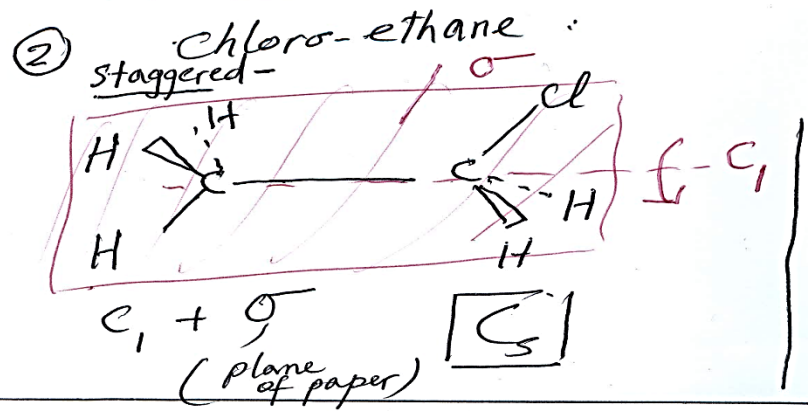 ② chloro-ethane :
staggered-
σ
H H Cl
C C C₁
H H
H
C₁ + σ Cs
(plane of paper)